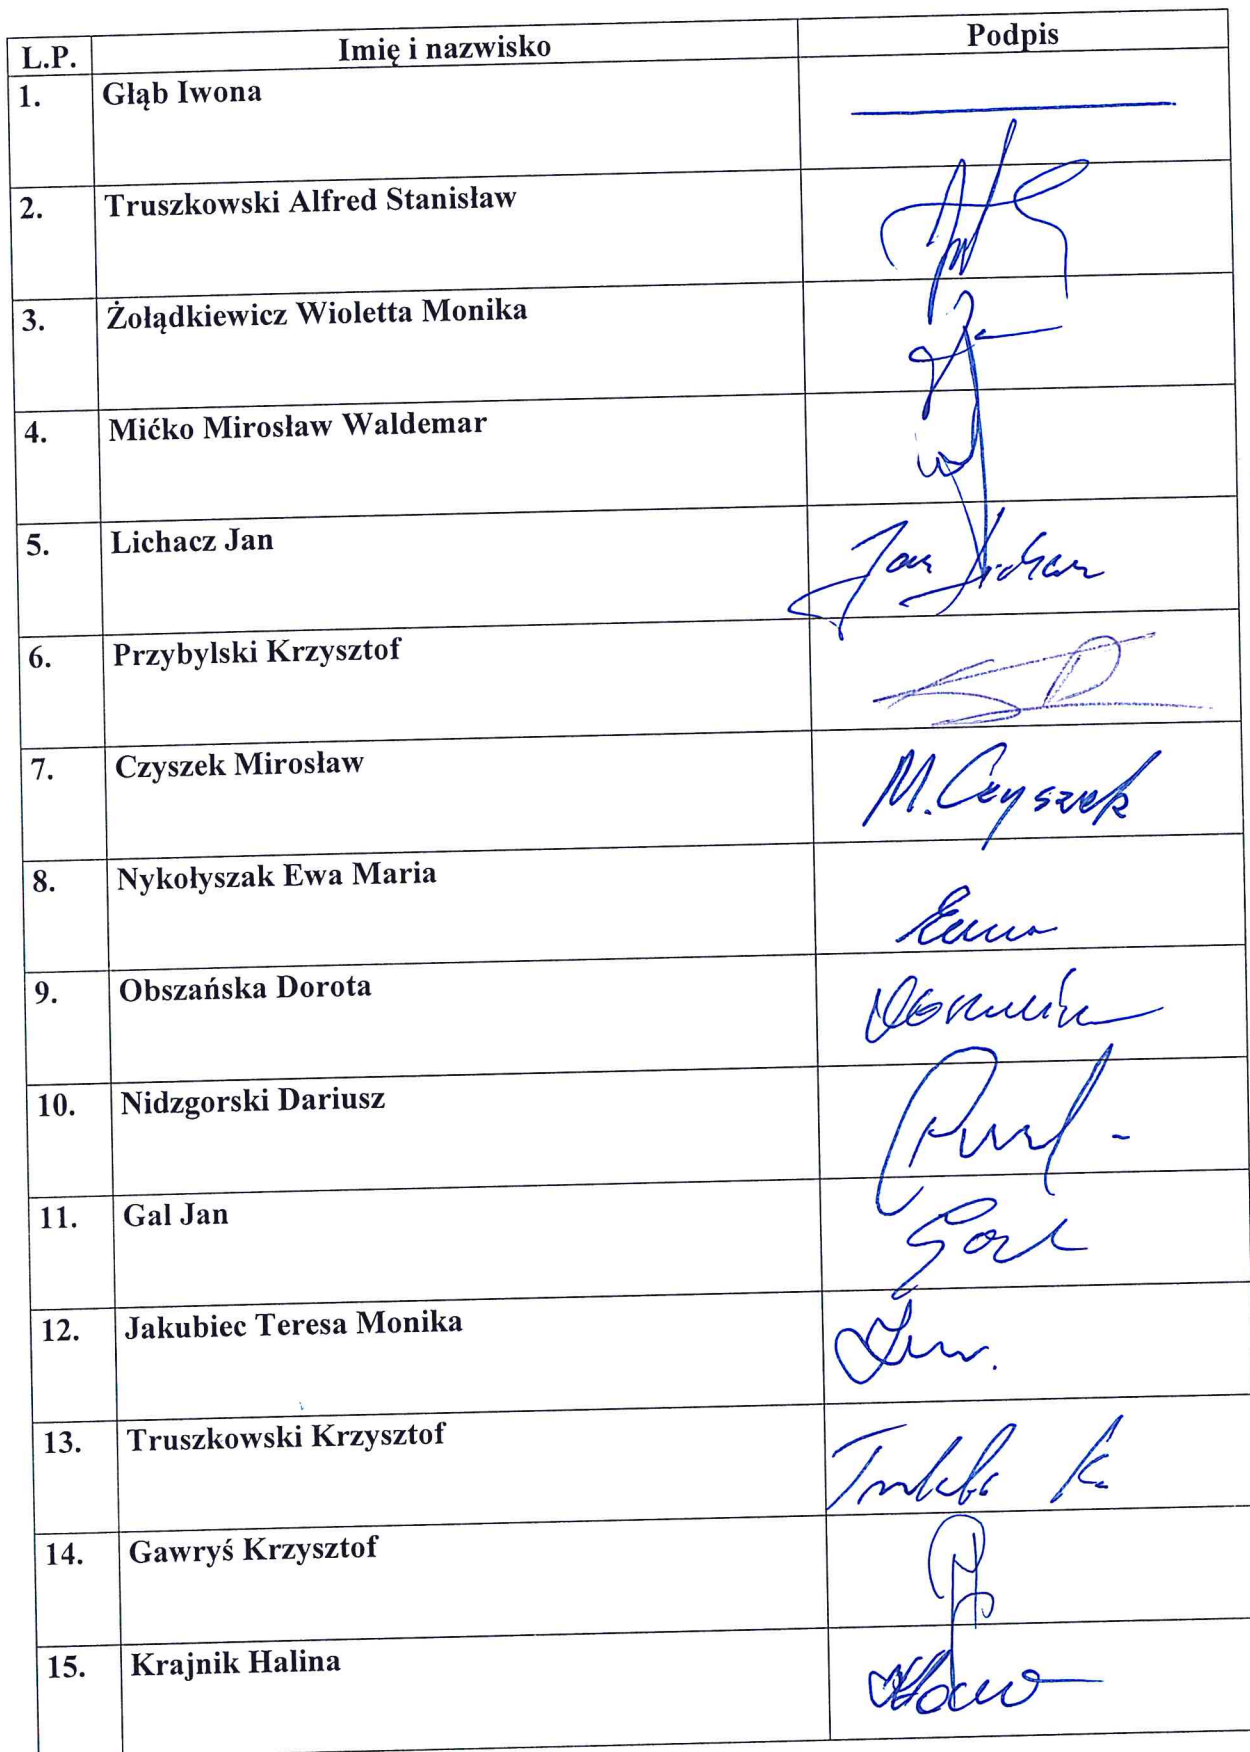 L.P. Imię i nazwisko Podpis
1. Głąb Iwona
2. Truszkowski Alfred Stanisław
3. Żołądkiewicz Wioletta Monika
4. Mićko Mirosław Waldemar
5. Lichacz Jan Jan
6. Przybylski Krzysztof
7. Czyszek Mirosław M. Czyszek
8. Nykołyszak Ewa Maria
9. Obszańska Dorota
10. Nidzgorski Dariusz
11. Gal Jan
12. Jakubiec Teresa Monika
13. Truszkowski Krzysztof K.
14. Gawryś Krzysztof
15. Krajnik Halina